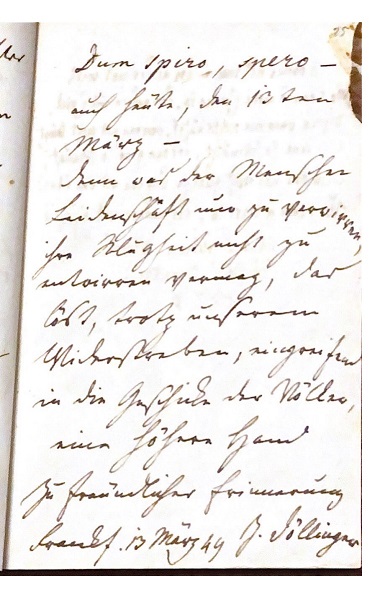 25
Dum spiro, spero –
auch heute, den 13ten
März –
denn was der Menschen
Leidenschaft nur zu verwirren,
ihre Klugheit nicht zu
entwirren vermag, das
löst, trotz unserem
Widerstreben, eingreifend
in die Geschicke der Völker,
eine höhere Hand
Zu freundlicher Erinnerung
Frankf. 13 März 49 J. Döllinger